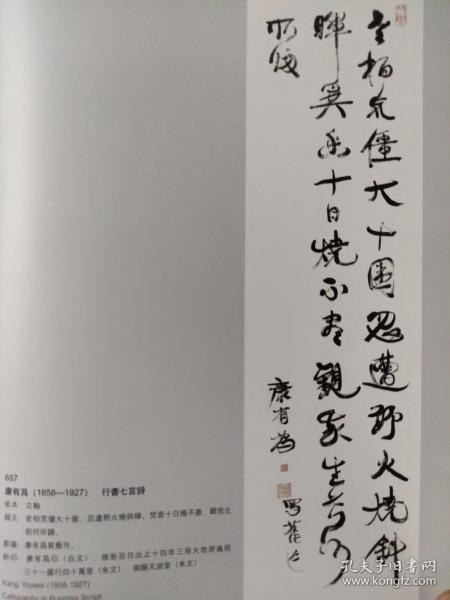 老柏荒僵大十圍忽遭野火燒斜
暉焚香十日燒不盡觀我生前何
所歸
康有為
寫舊作
657
康有爲（1858—1927）　行書七言詩
紙本　立軸
釋文：老柏荒僵大十圍，忽遭野火燒斜暉，焚香十日燒不盡，觀我生
前何所歸。
款識：康有爲寫舊作。
鈐印：康有爲印（白文）　維新百日出亡十四年三周大地游遍經
三十一國行四十萬里（朱文）　御賜天游堂（朱文）
Kang Youwei (1858-1927)
Calligraphy in Running Script
孔夫子旧书网